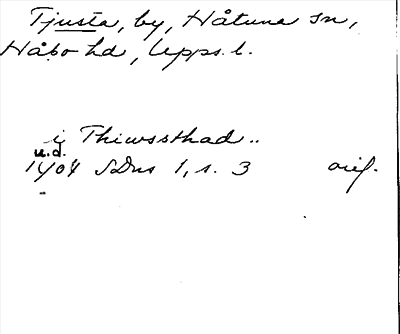 Tjusta, by, Håtuna sn,
Håbo hd, Upps. l.
i Thiwssthad ..
u.d.
1404 SDns 1, s. 3 orig.